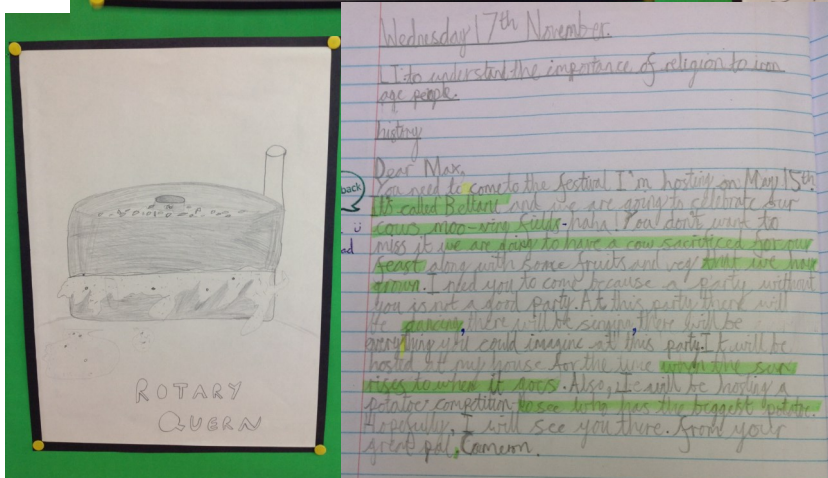 ROTARY
QUERN
back
ad
Wednesday 17th November.
LI to understand the importance of religion to iron
age people.
history
Dear Max,
You need to come to the festival I'm hosting on May 15th.
It's called Beltane and we are going to celebrate our
cows moo-ving fields-haha! You don't want to
miss it we are going to have a cow sacraficed for our
feast along with some fruits and veg that we have
grown. I need you to come because a party without
you is not a good party. At this party there will
be dancing, there will be singing, there will be
everything you could imagine at this party. It will be
hosted at my house for the time when the sun
rises to when it goes. Also, I will be hosting a
potatoe compotition to see who has the biggest potatoe.
Hopefully, I will see you there. From your
great pal, Cameron.